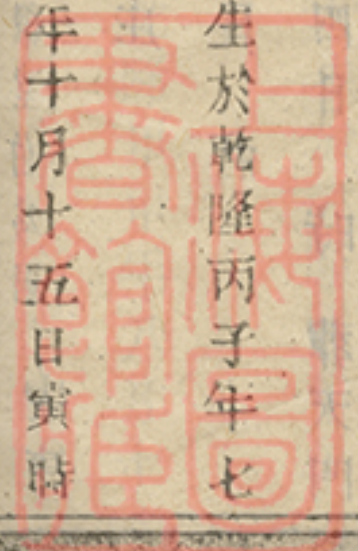 生於乾隆丙子年七
年十月十五日寅時
上海圖書館藏